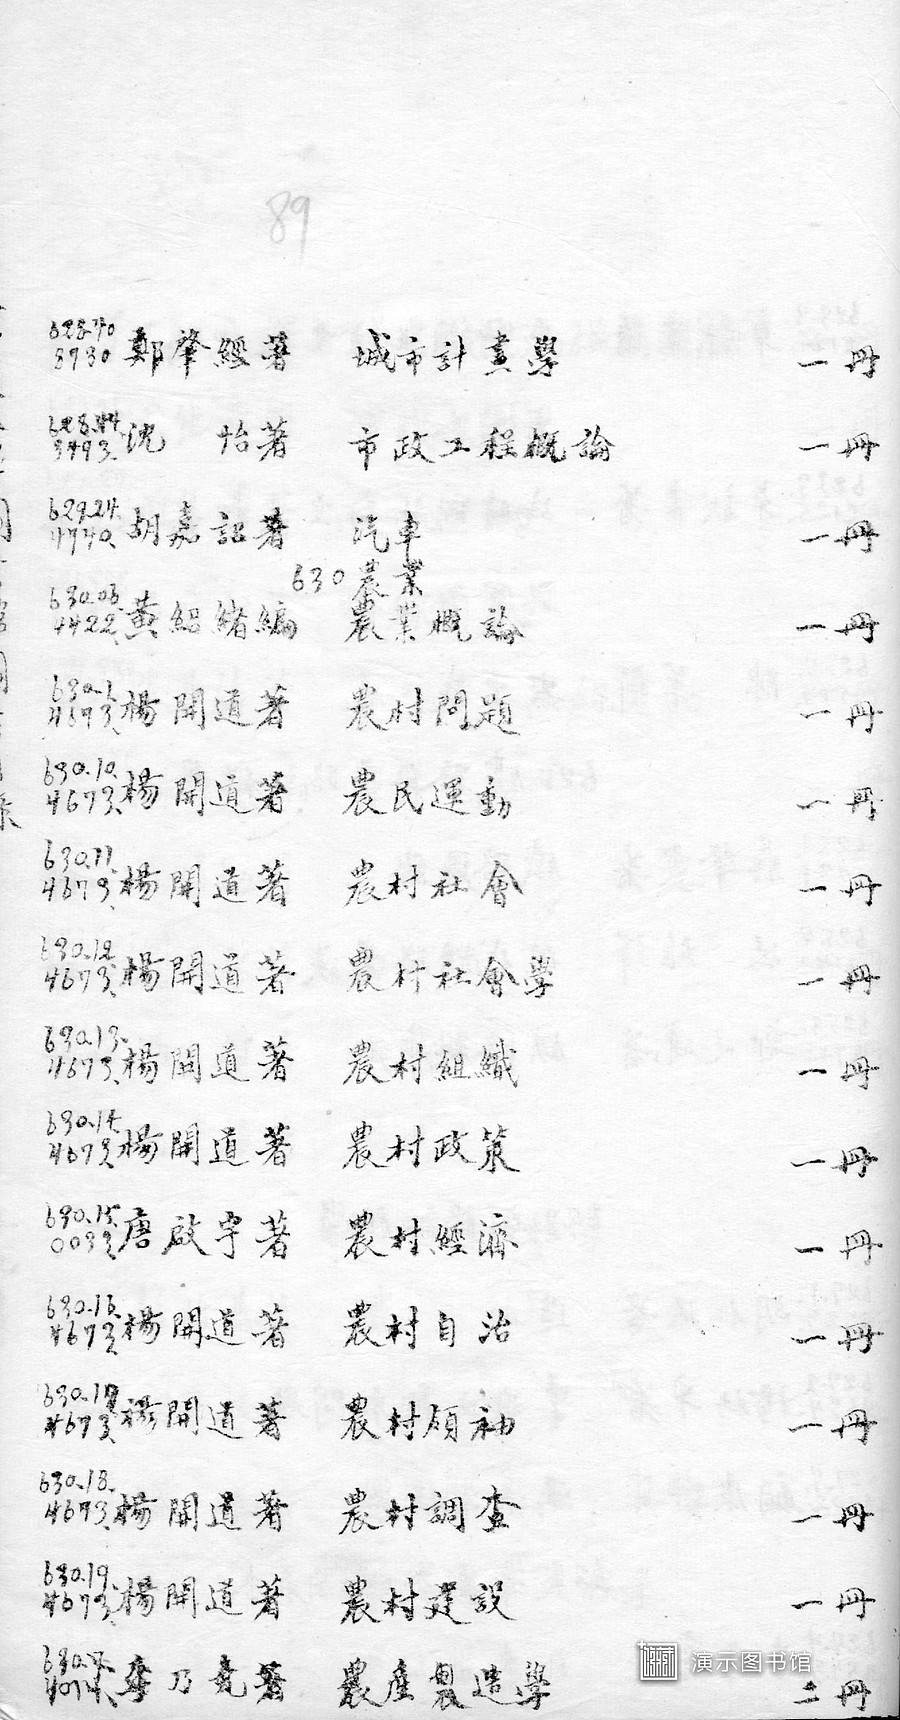 89
628.70 鄭肇經著 城市計畫學 一冊
8730
628.44 沈 怡著 市政工程概論 一冊
3493
629.24 胡嘉詔著 汽車 一冊
4740
630 農業
630.03 黃紹緒編 農業概論 一冊
4422
630.1 楊開道著 農村問題 一冊
4673
630.10 楊開道著 農民運動 一冊
4673
630.11 楊開道著 農村社會 一冊
4673
630.12 楊開道著 農村社會學 一冊
4673
630.13 楊開道著 農村組織 一冊
4673
630.14 楊開道著 農村政策 一冊
4673
630.15 唐啟宇著 農村經濟 一冊
0033
630.16 楊開道著 農村自治 一冊
4673
630.17 楊開道著 農村領袖 一冊
4673
630.18 楊開道著 農村調查 一冊
4673
630.19 楊開道著 農村建設 一冊
4673
李乃堯著 農產製造學 二冊
演示图书馆